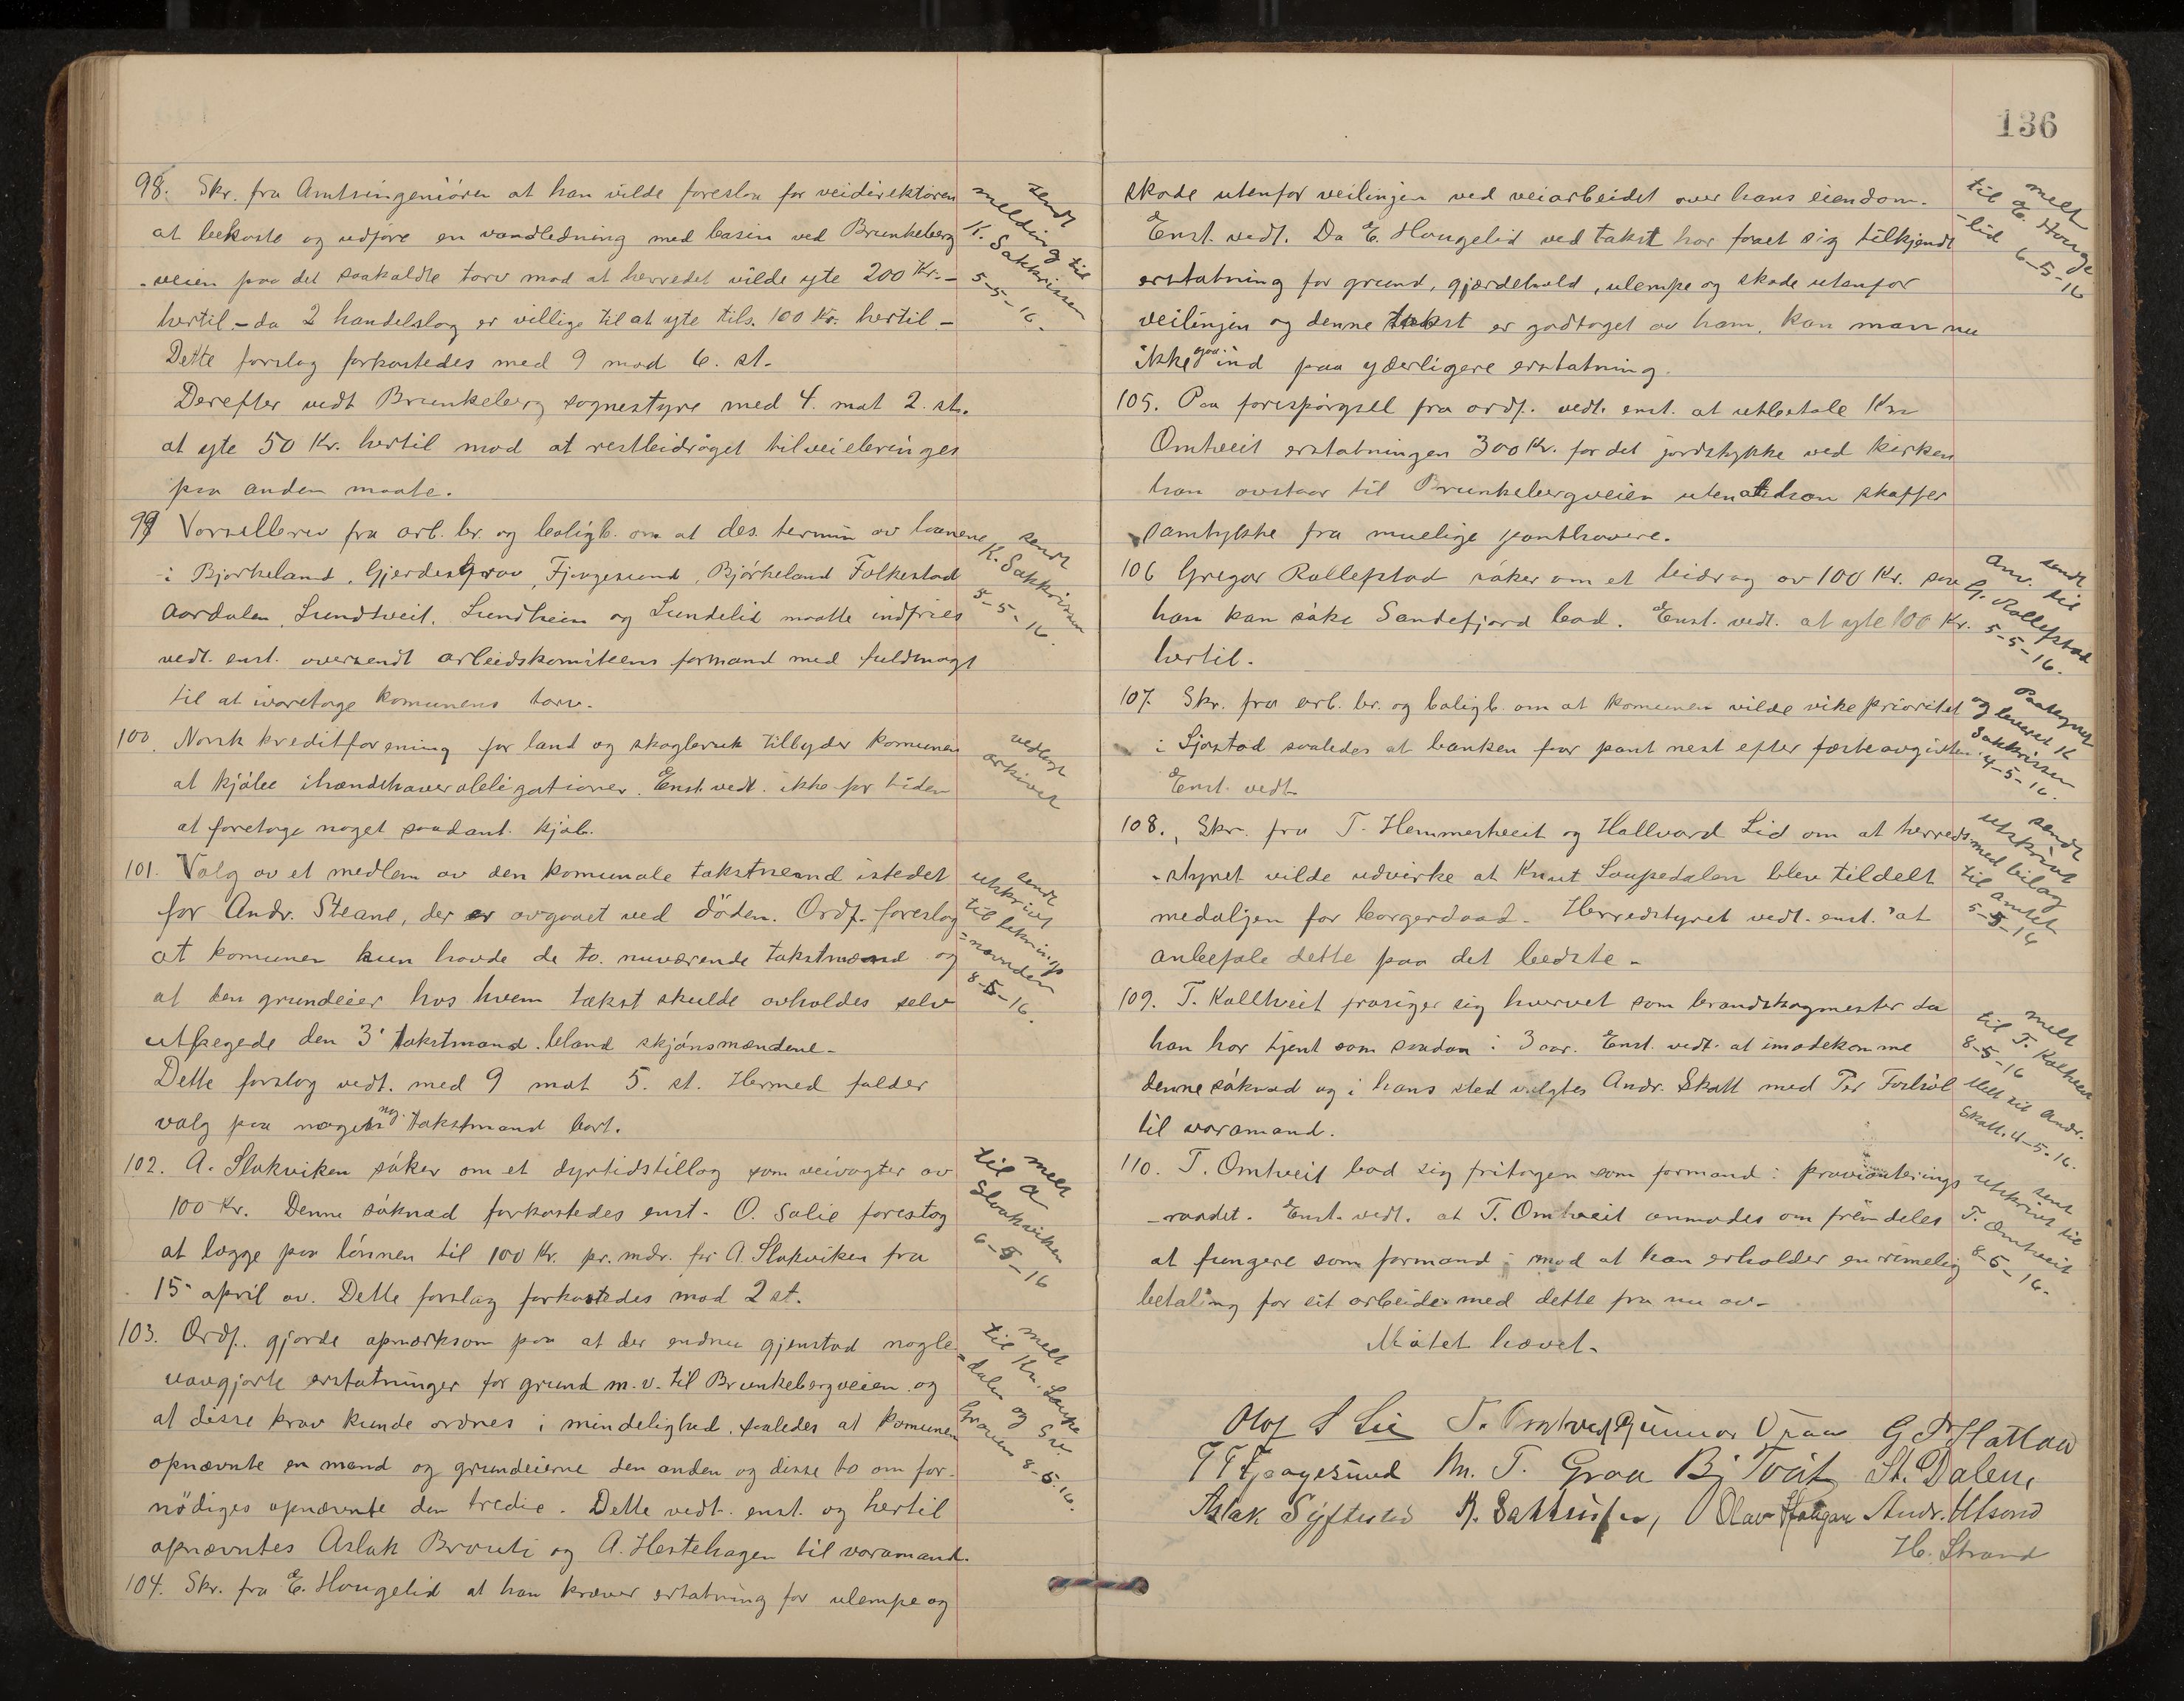 98. Skr. fra Amtsingeniøren at han vilde foreslaa for veidirektøren
at bekoste og udføre en vandledning med basin ved Brunkeberg
-veien paa det saakaldte torv mod at herredet vilde yte 200 Kr. -
hertil - da 2 handelslag er villige til at yte tils. 100 Kr. hertil -
Dette forslag forkastedes med 9 mod 6. st.
Derefter vedt Brunkeberg sognestyre med 4. mot 2. st.
at yte 50 Kr. hertil mod at restbeidraget tilveiebringes
paa anden maate.
sendt
melding til
K. Sakkrissen
5-5-16.
99 Varselbrev fra arb. br. og boligb. om at des. termin av laanene
i Bjørkeland, Gjerdesgrav, Fjaagesund, Bjørkeland Folkestad
Aardalen, Lundtveit, Lundheim og Lundelid maatte indfries
vedt. enst. oversendt arbeidskomiteens formand med fuldmagt
til at ivaretage komunens tarv.
sendt
K. Sakkrissen
5-5-16
100. Norsk kreditforening for land og skogbruk tilbyder komunen
at kjøbe ihændehaverobligationer. Enst. vedt. ikke for tiden
at foretage noget saadant kjøb.
vedlagt
arkivet
101. Valg av et medlem av den komunale takstnevnd istedet
for Andr. Steane, der er avgaaet ved døden. Ordf. foreslog
at komunen kun havde de to. nuværende takstmænd og
at den grundeier hos hvem takst skulde avholdes selv
utpegede den 3' takstmand bland skjønsmændene -
Dette forslag vedt. med 9 mot 5. st. Hermed falder
valg paa nogen ny takstmand bort.
sendt
utskrivt
til
=nævnden
8-5-16.
102. A. Slokviken søker om et dyrtidstillæg som veivogter av
100 Kr. Denne søknad forkastedes enst. O. Salie foreslog
at lægge paa lønnen til 100 Kr. pr. mdr. for A. Slokviken fra
15 april av. Dette forslag forkastedes mod 2 st.
melt
til A
Slokviken
6-5-16
103. Ordf. gjorde opmerksom paa at der endnu gjenstod nogle
uavgjorte erstatninger for grund m.v. til Brunkebergveien og
at disse krav kunde ordnes i mindelighed, saaledes at komunen
opnævnte en mand og grundeierne den anden og disse to om for-
nødiges opnævnte den tredie. Dette vedt. enst. og hertil
opnævntes Aslak Brauti og A. Hestehagen til varamand.
melt
til Kn. Loupe
=dalen og Sv.
8-5-16.
104. Skr. fra E. Haugelid at han kræver erstatning for ulempe og
136
skade utenfor veilinjen ved veiarbeidet over hans eiendom.
Enst. vedt. Da E. Haugelid ved takst har faaet sig tilkjendt
erstatning for grund, gjærdehold, ulempe og skade utenfor
veilinjen og denne takst er godtaget av ham, kan man nu
ikke gaa ind paa yderligere erstatning.
melt
til E. Hauge
-lid 6-5-16
105. Paa forespørgsel fra ordf. vedt. enst. at utbetale Kn
Omtveit erstatningen 300 Kr. for det jordstykke ved kirken
han avstaar til Brunkebergveien uten at han skaffer
samtykke fra muelige panthavere.
106 Gregar Rollefstad søker om et bidrag av 100 Kr. saa
han kan søke Sandefjord bad. Enst. vedt. at yte 100 Kr.
hertil.
sendt
Anv. til
G. Rollefstad
5-5-16.
107. Skr. fra arb. br. og boligb. om at komunen vilde vike prioritet
i Sjøstad saaledes at banken faar pant nest efter første avgiften.
Enst. vedt.
Paategnet
og leveret K
Sakkrissen
4-5-16.
108. Skr. fra T. Hemmestveit og Hallvard Lid om at herreds
-styret vilde udvirke at Knut Loupedalen blev tildelt
medaljen for borgerdaad. Herredstyret vedt. enst. at
anbefale dette paa det bedste -
sendt
utskrivt
med bilag
til amtet
5-5-16
109. T. Kallhveit frasiger sig hvervet som brandskogmester da
han har tjent som saadan i 3 aar. Enst. vedt. at imødekomme
denne søknad og i hans sted valgtes Andr. Skatt med Per
til varamand.
melt
til T. Kalhveit
8-5-16
Melt til Andr.
Skatt. 4-5-16.
110. T. Omtveit bad sig fritagen som formand i provianterings
-raadet. Enst. vedt. at T. Omtveit anmodes om fremdeles
at fungere som formand mod at han erholder en rimelig
betaling for sit arbeide med dette fra nu av -
Møtet hævet -
sent
utskrivt til
T. Omtveit
8-5-16.
Olaf S Lie T. Omtveit Gunnar Opaa G. T. Flatland
T T Fjaagesund M. T. Graa Bj Tveit St. Dalen,
Aslak Syftestad K. Sakkrissen, Olav Haugan Andr. Ulsond
H. Strand